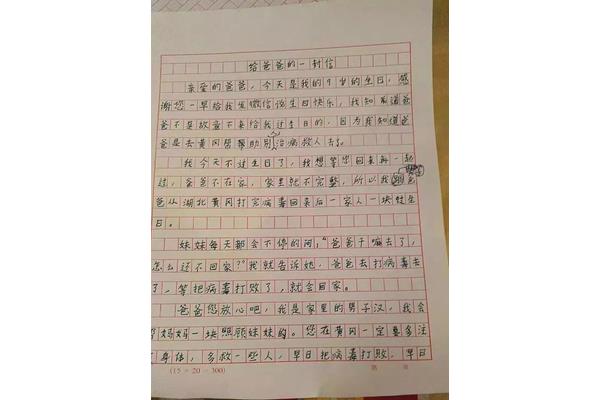 给爸爸的一封信
亲爱的爸爸，今天是我的9岁的生日，感
谢您一早给我发微信说生日快乐，我知道爸
爸不是故意不来给我过生日的，因为我知道爸
爸是去黄冈帮帮助别人治病救人去了。
我今天不过生日了，我想等您回来再一起
过，爸爸不在家，家里就不完整，所以我想等爸
爸从湖北黄冈打完病毒回来后一家人一块过生
日。
妹妹每天都会不停的问："爸爸干嘛去了，
怎么还不回家？"我就告诉她，爸爸去打病毒去
了，等把病毒打败了，就会回家。
爸爸您放心吧，我是家里的男子汉，我会
妈妈一块照顾妹妹的。您在黄冈一定要多注
身体，多救一些人，早日把病毒打败，早日
(15×20=300)
第 页